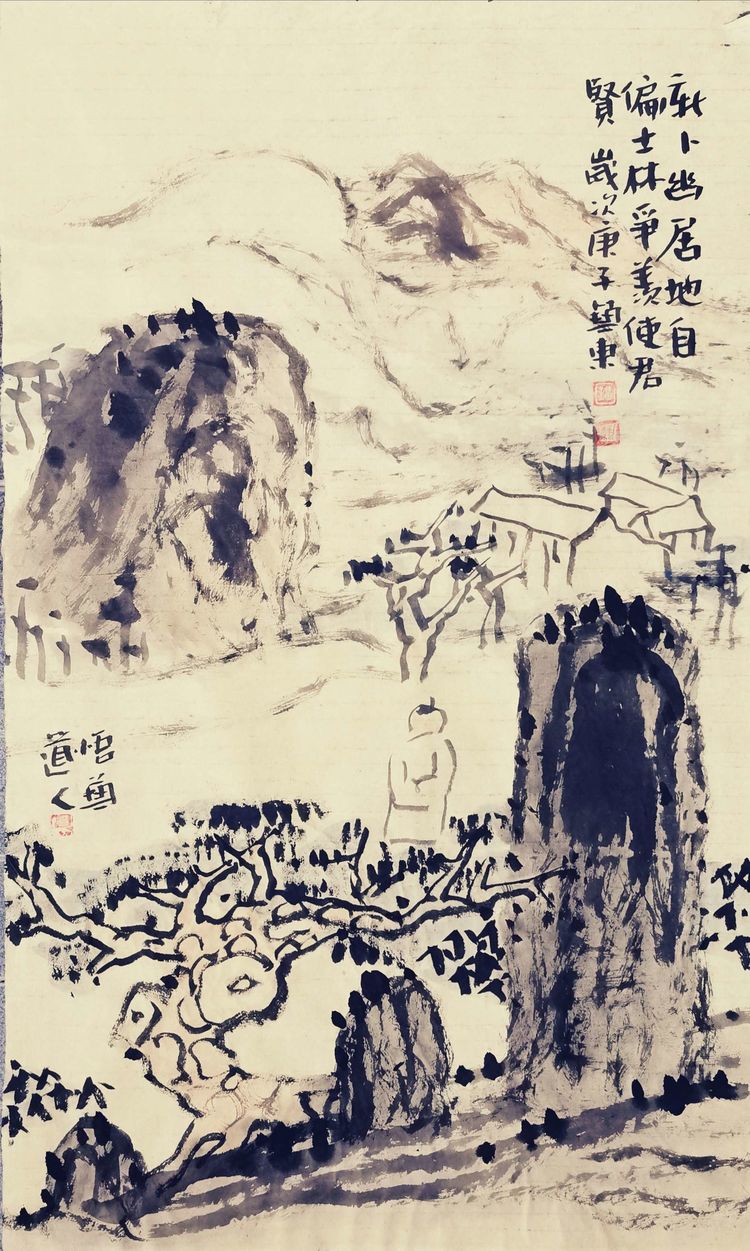 新卜幽居地自
偏士林爭羨使君
賢 歲次庚子藝東
悟兽
道人